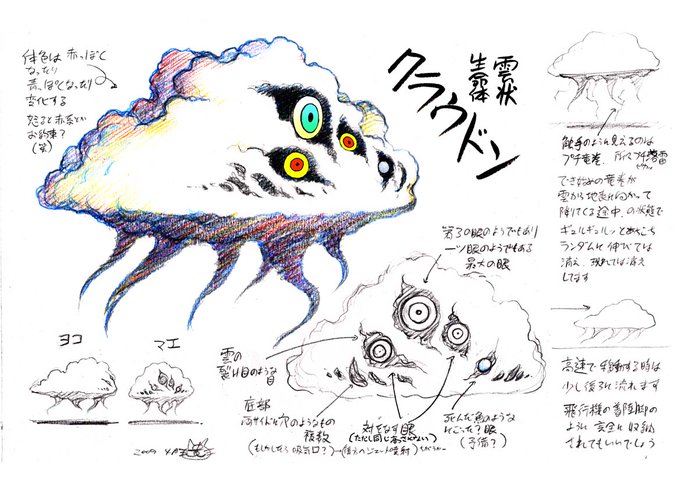 雲状
生命体
クラウドン
体色は 赤っぽく
なったり
青っぽくなったり
変化する
怒ると赤系とか
お約束？
(笑)
触手のように見えるのは
プチ竜巻
できはじめの竜巻が
雲から地表に向かって
降りてくる途中の状態で
ギュルギュルッとあちこち
ランダムに伸びては
消え、現れては消え
してます
第3の眼のようでもあり
一ツ眼のようでもある
最大の眼
ヨコ
マエ
雲の
裂け目のような
目
底部
両サイドに穴のようなもの
複数
(もしかしたら吸気口？)
対をなす眼
(ただし同じ
死んだ魚のような
にごった？眼
(予備？)
高速で移動する時は
少し後ろに流れます
飛行機の着陸脚の
ように 完全に収納
されてもいいでしょう
2009 4月